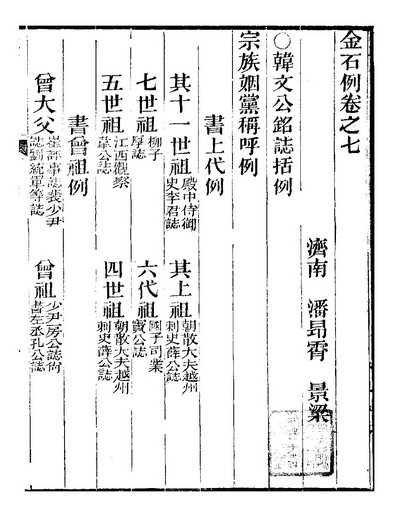 金石例卷之七
濟南 潘昂霄 景梁
○韓文公銘誌括例
宗族姻黨稱呼例
書上代例
其十一世祖 殿中侍御史李君誌 其上祖 朝散大夫越州刺史薛公誌
七世祖 柳子厚誌 江西觀察韋公誌 六代祖 國子司業竇公誌
五世祖 四世祖 朝散大夫越州刺史薛公誌
書曾祖例
曾大父 崔評事誌裴少尹誌劉統軍等誌 曾祖 少尹房公誌尚書左丞孔公誌